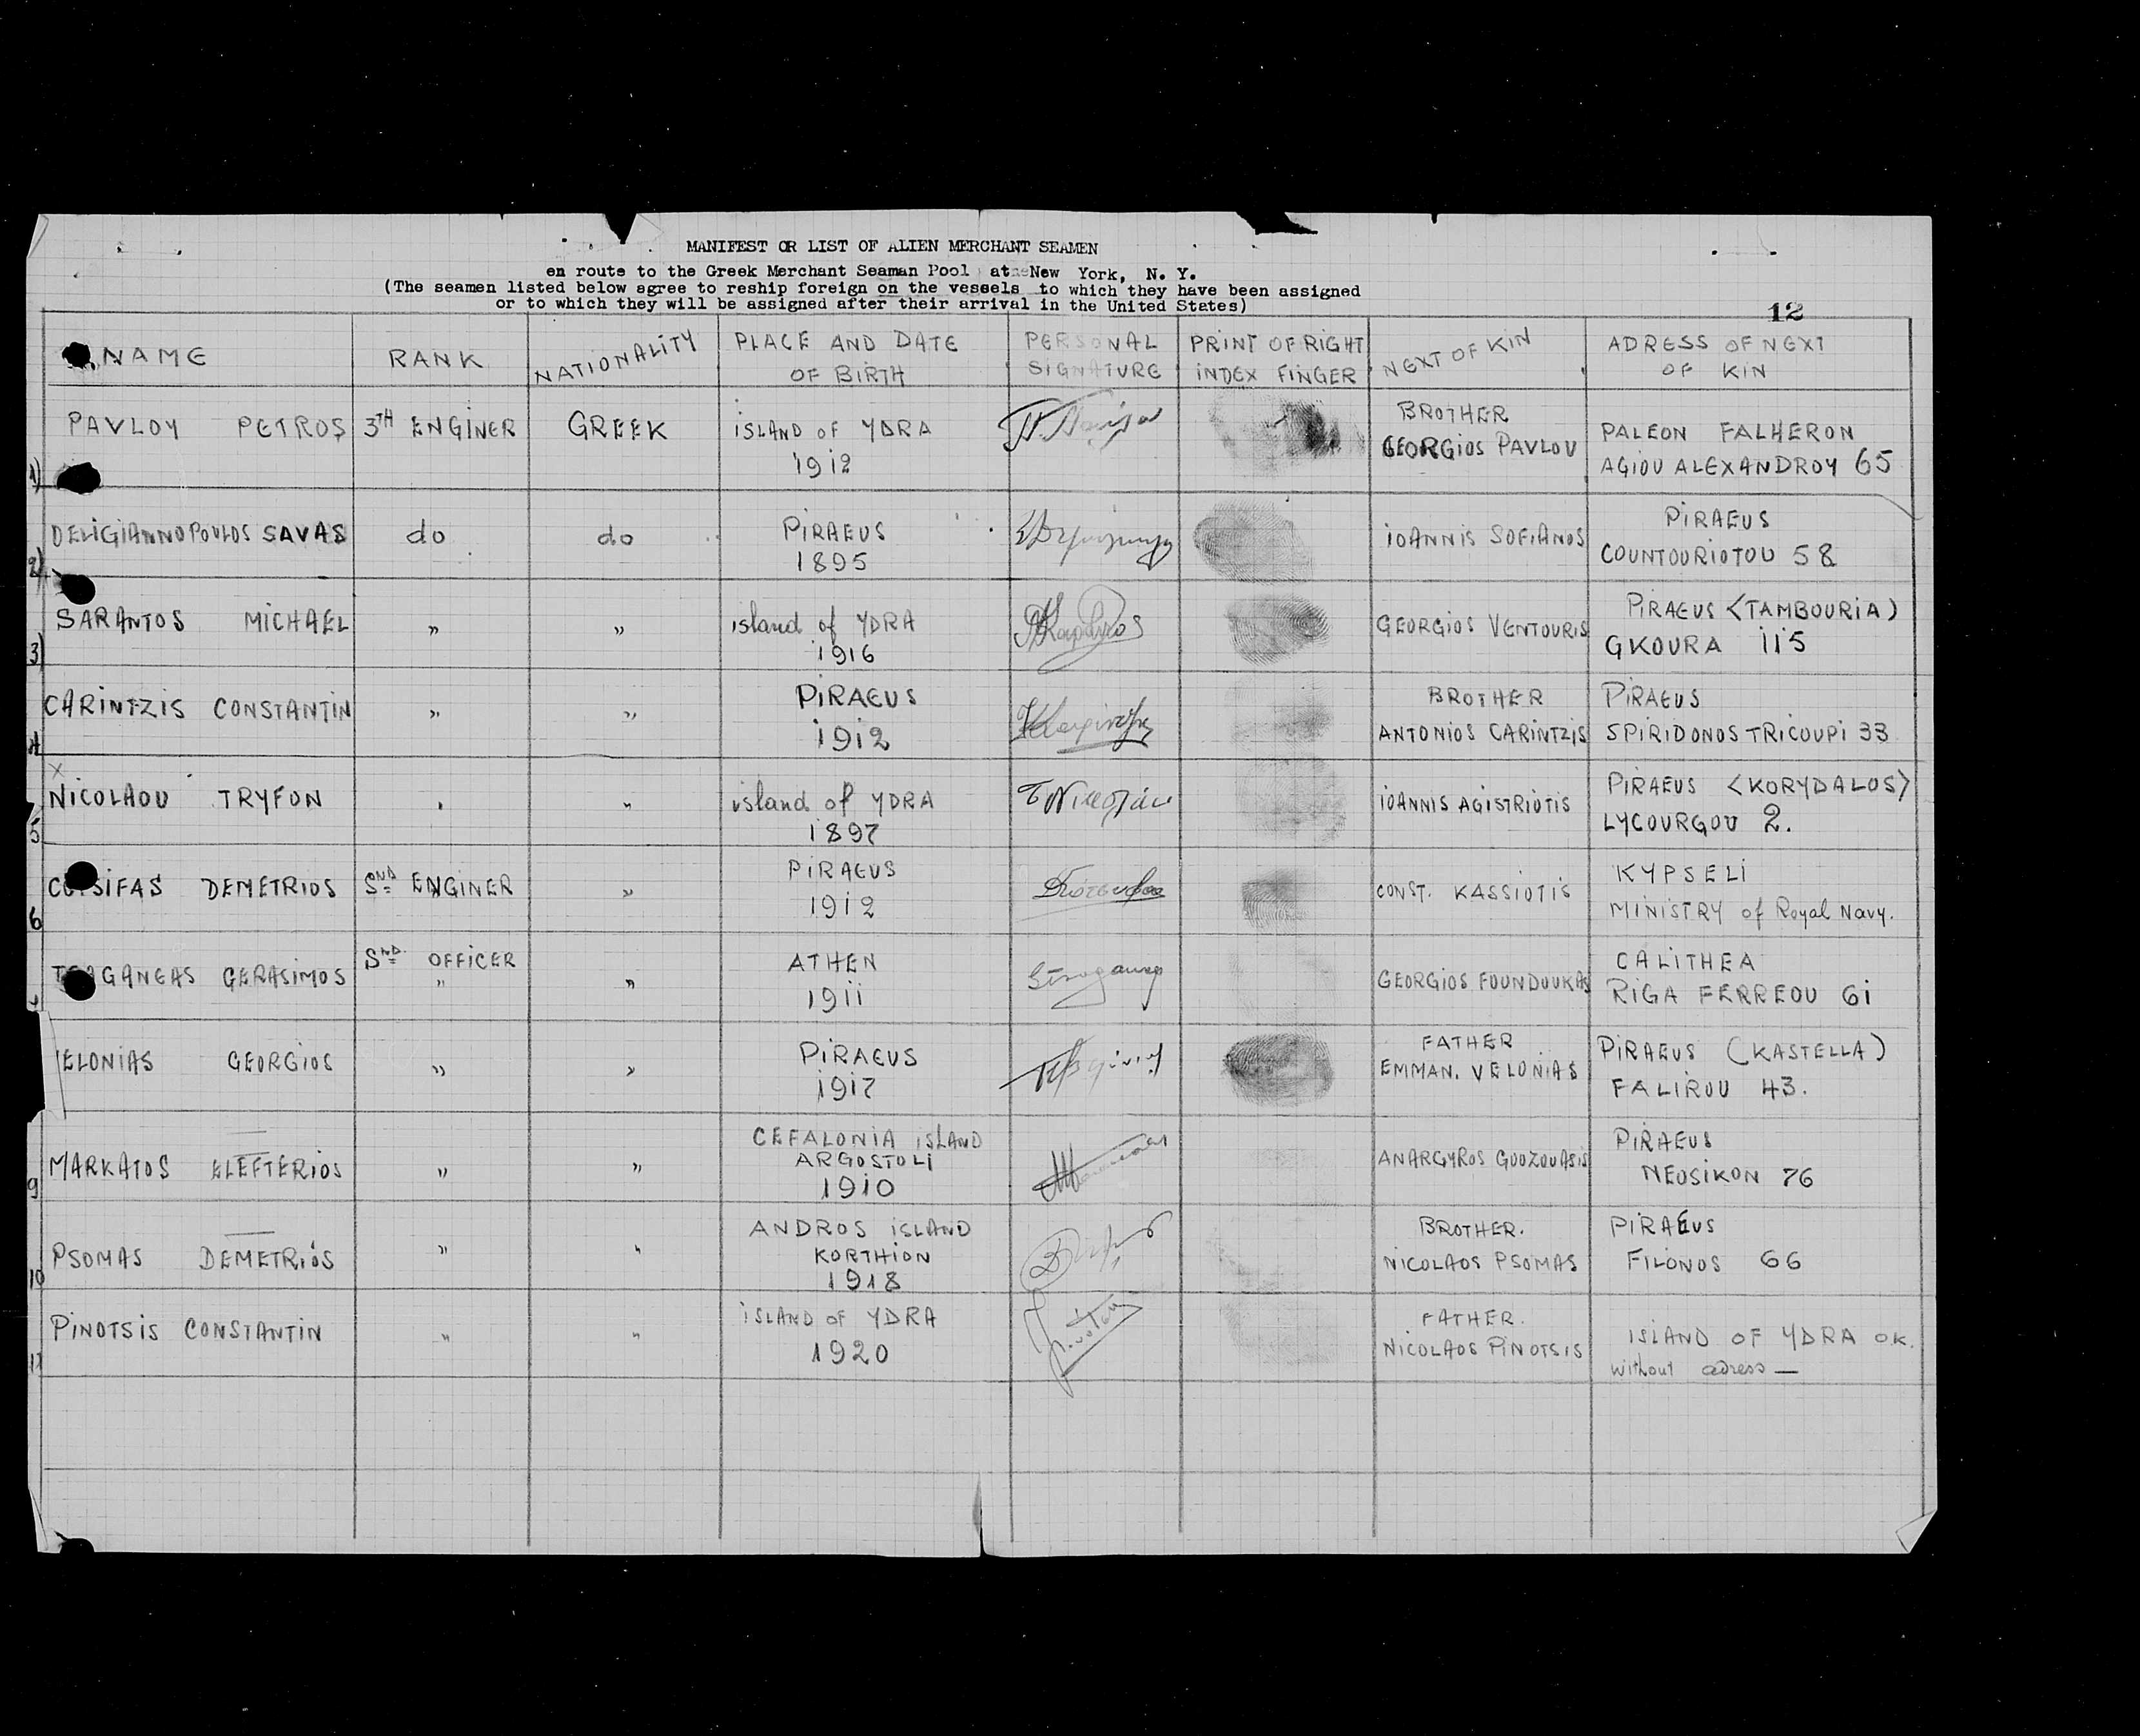 MANIFEST OR LIST OF ALIEN MERCHANT SEAMEN
en route to the Greek Merchant Seaman Pool at New York, N. Y.
(The seamen listed below agree to reship foreign on the vessels to which they have been assigned
or to which they will be assigned after their arrival in the United States)
12
NAME RANK NATIONALITY PLACE AND DATE OF BIRTH PERSONAL SIGNATURE PRINT OF RIGHT INDEX FINGER NEXT OF KIN ADRESS OF NEXT OF KIN
1) PAVLOY PETROS 3TH ENGINER GREEK ISLAND OF YDRA 1912 BROTHER GEORGIOS PAVLOU PALEON FALHERON AGIOU ALEXANDROY 65
2) DELIGIANNOPOULOS SAVAS do do PIRAEUS 1895 IOANNIS SOFIANOS PIRAEUS COUNTOURIOTOU 58
3) SARANTOS MICHAEL " " island of YDRA 1916 GEORGIOS VENTOURIS PIRAEUS <TAMBOURIA) GKOURA 115
4 CARINTZIS CONSTANTIN " " PIRAEUS 1912 BROTHER ANTONIOS CARINTZIS PIRAEUS SPIRIDONOS TRICOUPI 33
x
5 NICOLAOU TRYFON " " island of YDRA 1897 IOANNIS AGISTRIOTIS PIRAEUS <KORYDALOS> LYCOURGOU 2.
6 SIFAS DEMETRIOS SND ENGINER " PIRAEUS 1912 CONST. KASSIOTIS KYPSELI MINISTRY of Royal Navy.
GANEAS GERASIMOS SND OFFICER " " ATHEN 1911 GEORGIOS FOUNDOUKAS CALITHEA RIGA FERREOU 61
ELONIAS GEORGIOS " " PIRAEUS 1917 FATHER EMMAN. VELONIAS PIRAEUS (KASTELLA) FALIROU 43.
9 MARKATOS ELEFTERIOS " " CEFALONIA ISLAND ARGOSTOLI 1910 ANARGYROS GOUZOUASIS PIRAEUS NEOSIKON 76
10 PSOMAS DEMETRIOS " " ANDROS ISLAND KORTHION 1918 BROTHER. NICOLAOS PSOMAS PIRAEUS FILONOS 66
11 PINOTSIS CONSTANTIN " " ISLAND OF YDRA 1920 FATHER. NICOLAOS PINOTSIS ISLAND OF YDRA O.K. without adress —